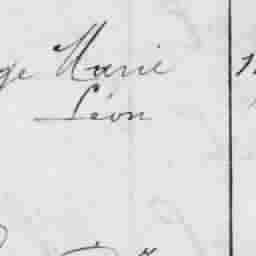 ge Marie
Léon